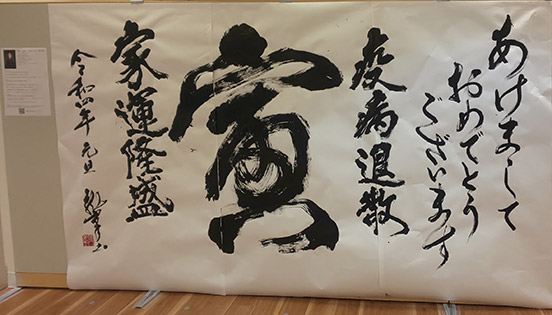 あけまして
おめでとう
ございます
疫病退散
寅
家運隆盛
令和四年 元旦